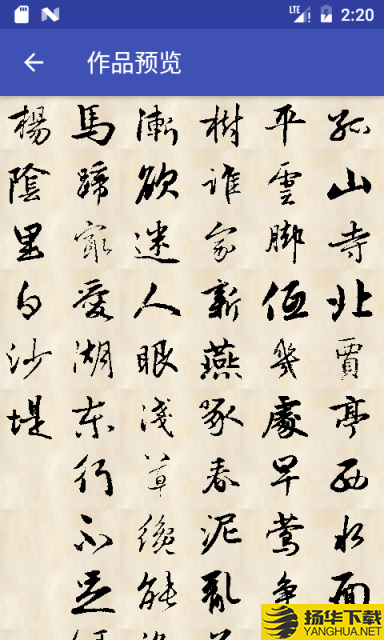 LTE 2:20
作品预览
孤山寺北賈亭西水面
平雲脚低幾處早鶯争
樹谁家新燕啄春泥亂
漸欲迷人眼淺草纔能
馬蹄最愛湖東行不足
楊陰里白沙堤
扬华下载
YANGHUA.NET